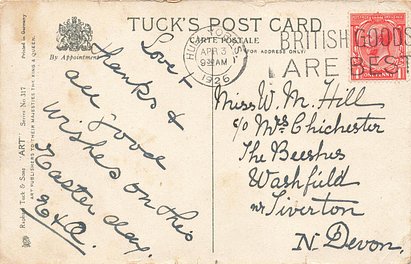 TUCK'S POST CARD
CARTE POSTALE
(FOR ADDRESS ONLY)
By Appointment
Raphael Tuck & Sons "ART" Series No. 317
ART PUBLISHERS TO THEIR MAJESTIES THE KING & QUEEN.
Printed in Germany
APR 3
1926
BRITISH GOODS
ARE BEST
Love &
thanks &
all good
wishes on this
Easter day.
Miss W. M. Hill
c/o Mrs Chichester
The Beeches
Washfield
nr Tiverton
N. Devon.